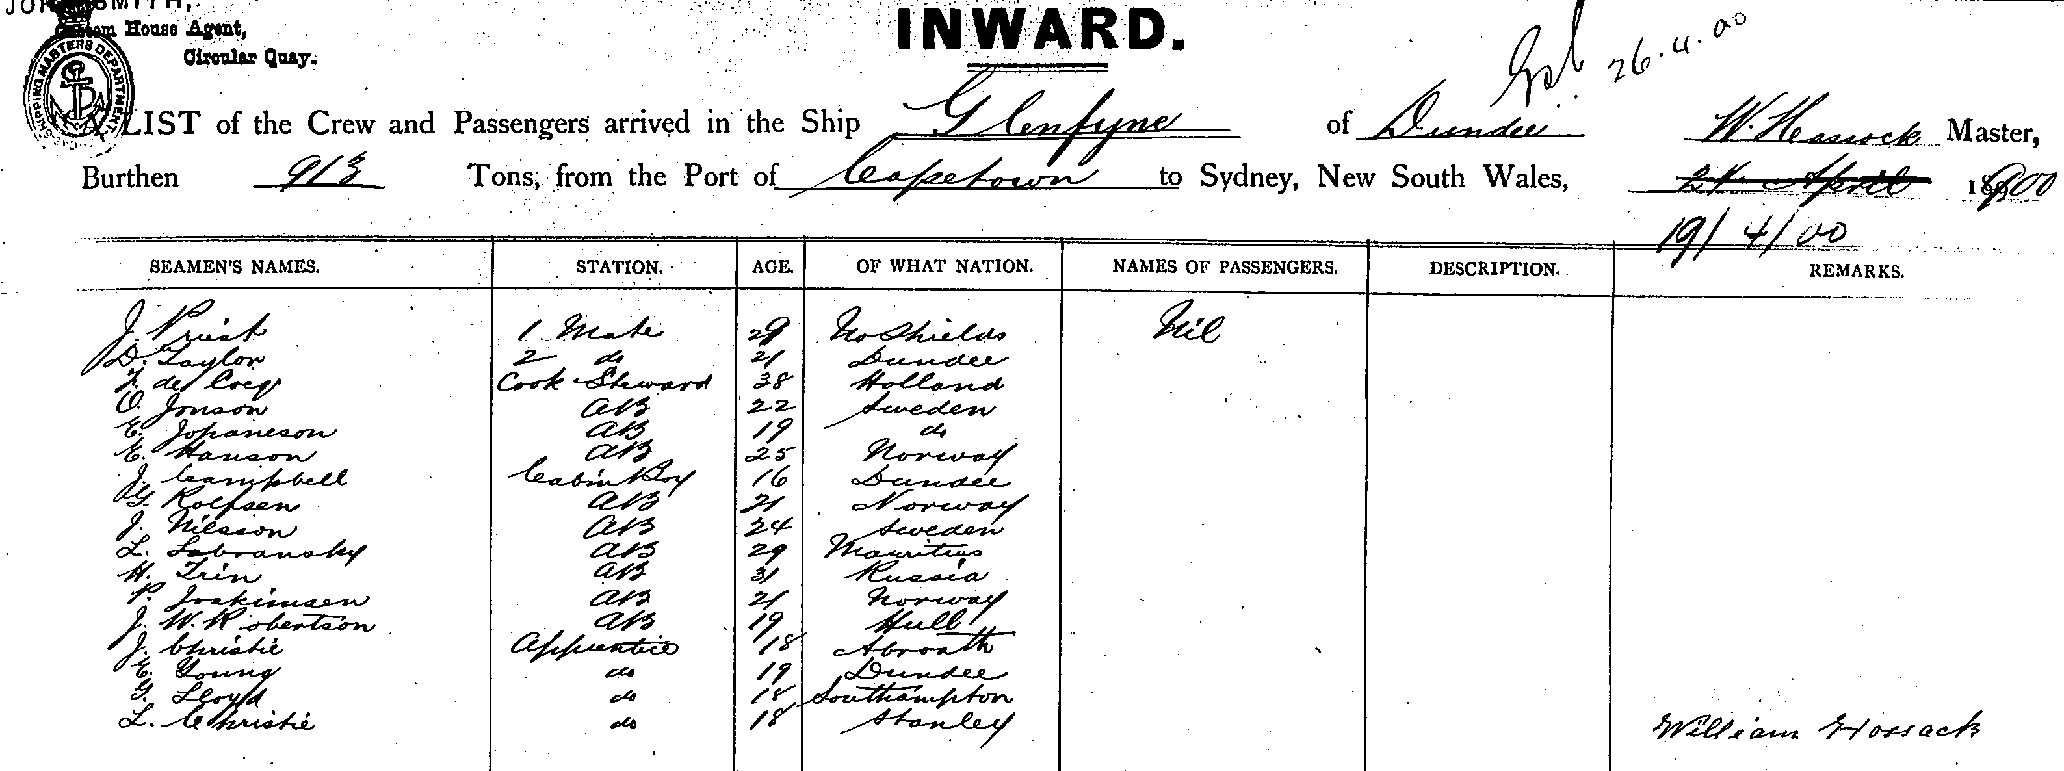 SMITH,
Custom House Agent,
Circular Quay.
SHIPPING MASTERS DEPARTMENT
INWARD.
26.4.00
A LIST of the Crew and Passengers arrived in the Ship Glenfyne of Dundee W. Hossock Master,
Burthen 913 Tons, from the Port of Capetown to Sydney, New South Wales, 21 April 1900
19/4/00
SEAMEN'S NAMES. STATION. AGE. OF WHAT NATION. NAMES OF PASSENGERS. DESCRIPTION. REMARKS.
J. Priest 1 Mate 29 No Shields Nil
D. Taylor 2 do 21 Dundee
F. de Cocq Cook & Steward 38 Holland
O. Jonson AB 22 Sweden
E. Johaneson AB 19 do
E. Hanson AB 25 Norway
J. Campbell Cabin Boy 16 Dundee
G. Rolfsen AB 21 Norway
J. Nilsson AB 24 Sweden
L. Labransky AB 29 Mauritius
H. Trin AB 31 Russia
P. Joakimsen AB 21 Norway
J. W. Robertson AB 19 Hull
J. Christie Apprentice 18 Abroath
E. Young do 19 Dundee
G. Lloyd do 18 Southampton
L. Christie do 18 Stanley
William Hossack